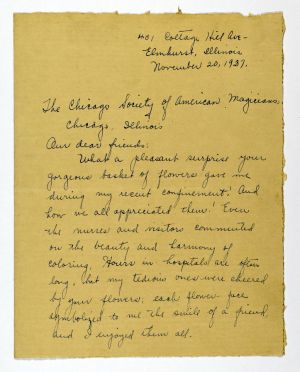 401 Cottage Hill Ave-
Elmhurst, Illinois
November 20, 1937.
The Chicago Society of American Magicians,
Chicago, Illinois
Our dear friends:
What a pleasant surprise your
gorgeous basket of flowers gave me
during my recent confinement! And
how we all appreciated them! Even
the nurses and visitors commented
on the beauty and harmony of
coloring. Hours in hospitals are often
long, but my tedious ones were cheered
by your flowers; each flower face
symbolized to me the smile of a friend,
and I enjoyed them all.